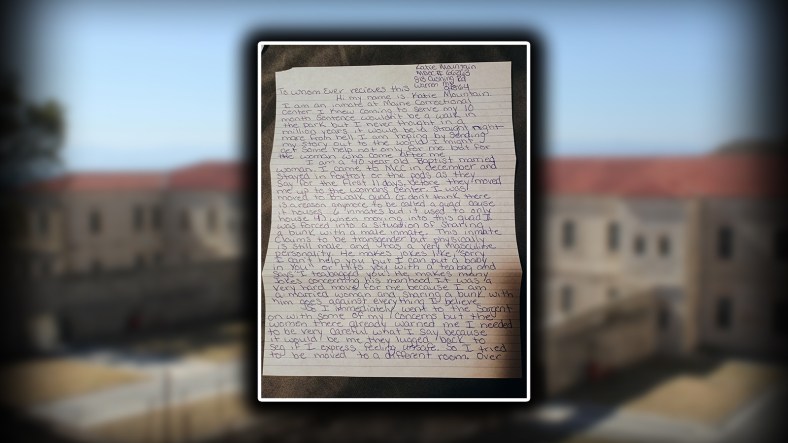 Katie Mountain
MDOC#
Cushing Rd
Warren
To Whom Ever recieves this
Hi my name is Katie Mountain.
I am an inmate at Maine Correctional
center. I knew coming to serve my 10
month sentence wouldn't be a walk in
the park but I never thought in a
million years it would be a straight night
mare from hell. I am hoping by sending
my story out to the world I might
get some help not only for me but for
the woman who come after me.
I am a 40 year old Baptist married
woman. I came to MCC in december and
stayed in Foxtrot or the pods as they
say for the first 11 days. Before they moved
me up to the womans center. I was
moved to quad (I don't think there
is a reason anymore to be called a quad cause
it houses 6 inmates but it used to only
house 4) when moving into this quad I
was forced into a situation of sharing
a bunk with a male inmate. This inmate
claims to be transgender but physically
is still male and has a very masculine
personality. He makes jokes like "sorry
I can't help you but I can put a body
in you" or Hits you with a teabag and
says "I teabagged you". He makes many
jokes concerning his manhood. It was a
very hard move for me because I am
a married woman and sharing a bunk with
him goes against everything I believe.
So I immediately went to the Sargent
on with some of my concerns but the
women there already warned me I needed
to be very careful what I say because
it would be me they lugged back to
seg if I express feeling unsafe. So I tried
to be moved to a different room. Over